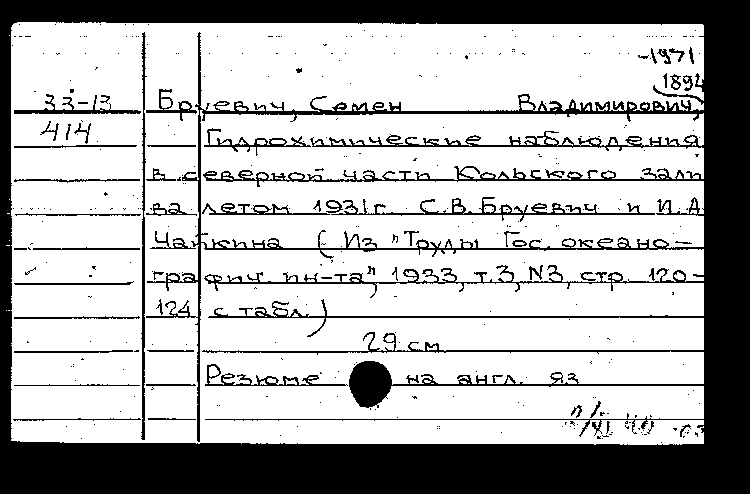 -1971
1894
33-13 Бруевич, Семен Владимирович,
414 Гидрохимические наблюдения
в северной части Кольского зали
ва летом 1931г. С.В. Бруевич и И.А
Чайкина (Из "Труды Гос. океано-
графич. ин-та", 1933, т.3, N3, стр. 120-
124 с табл.)
29 см
Резюме на англ. яз